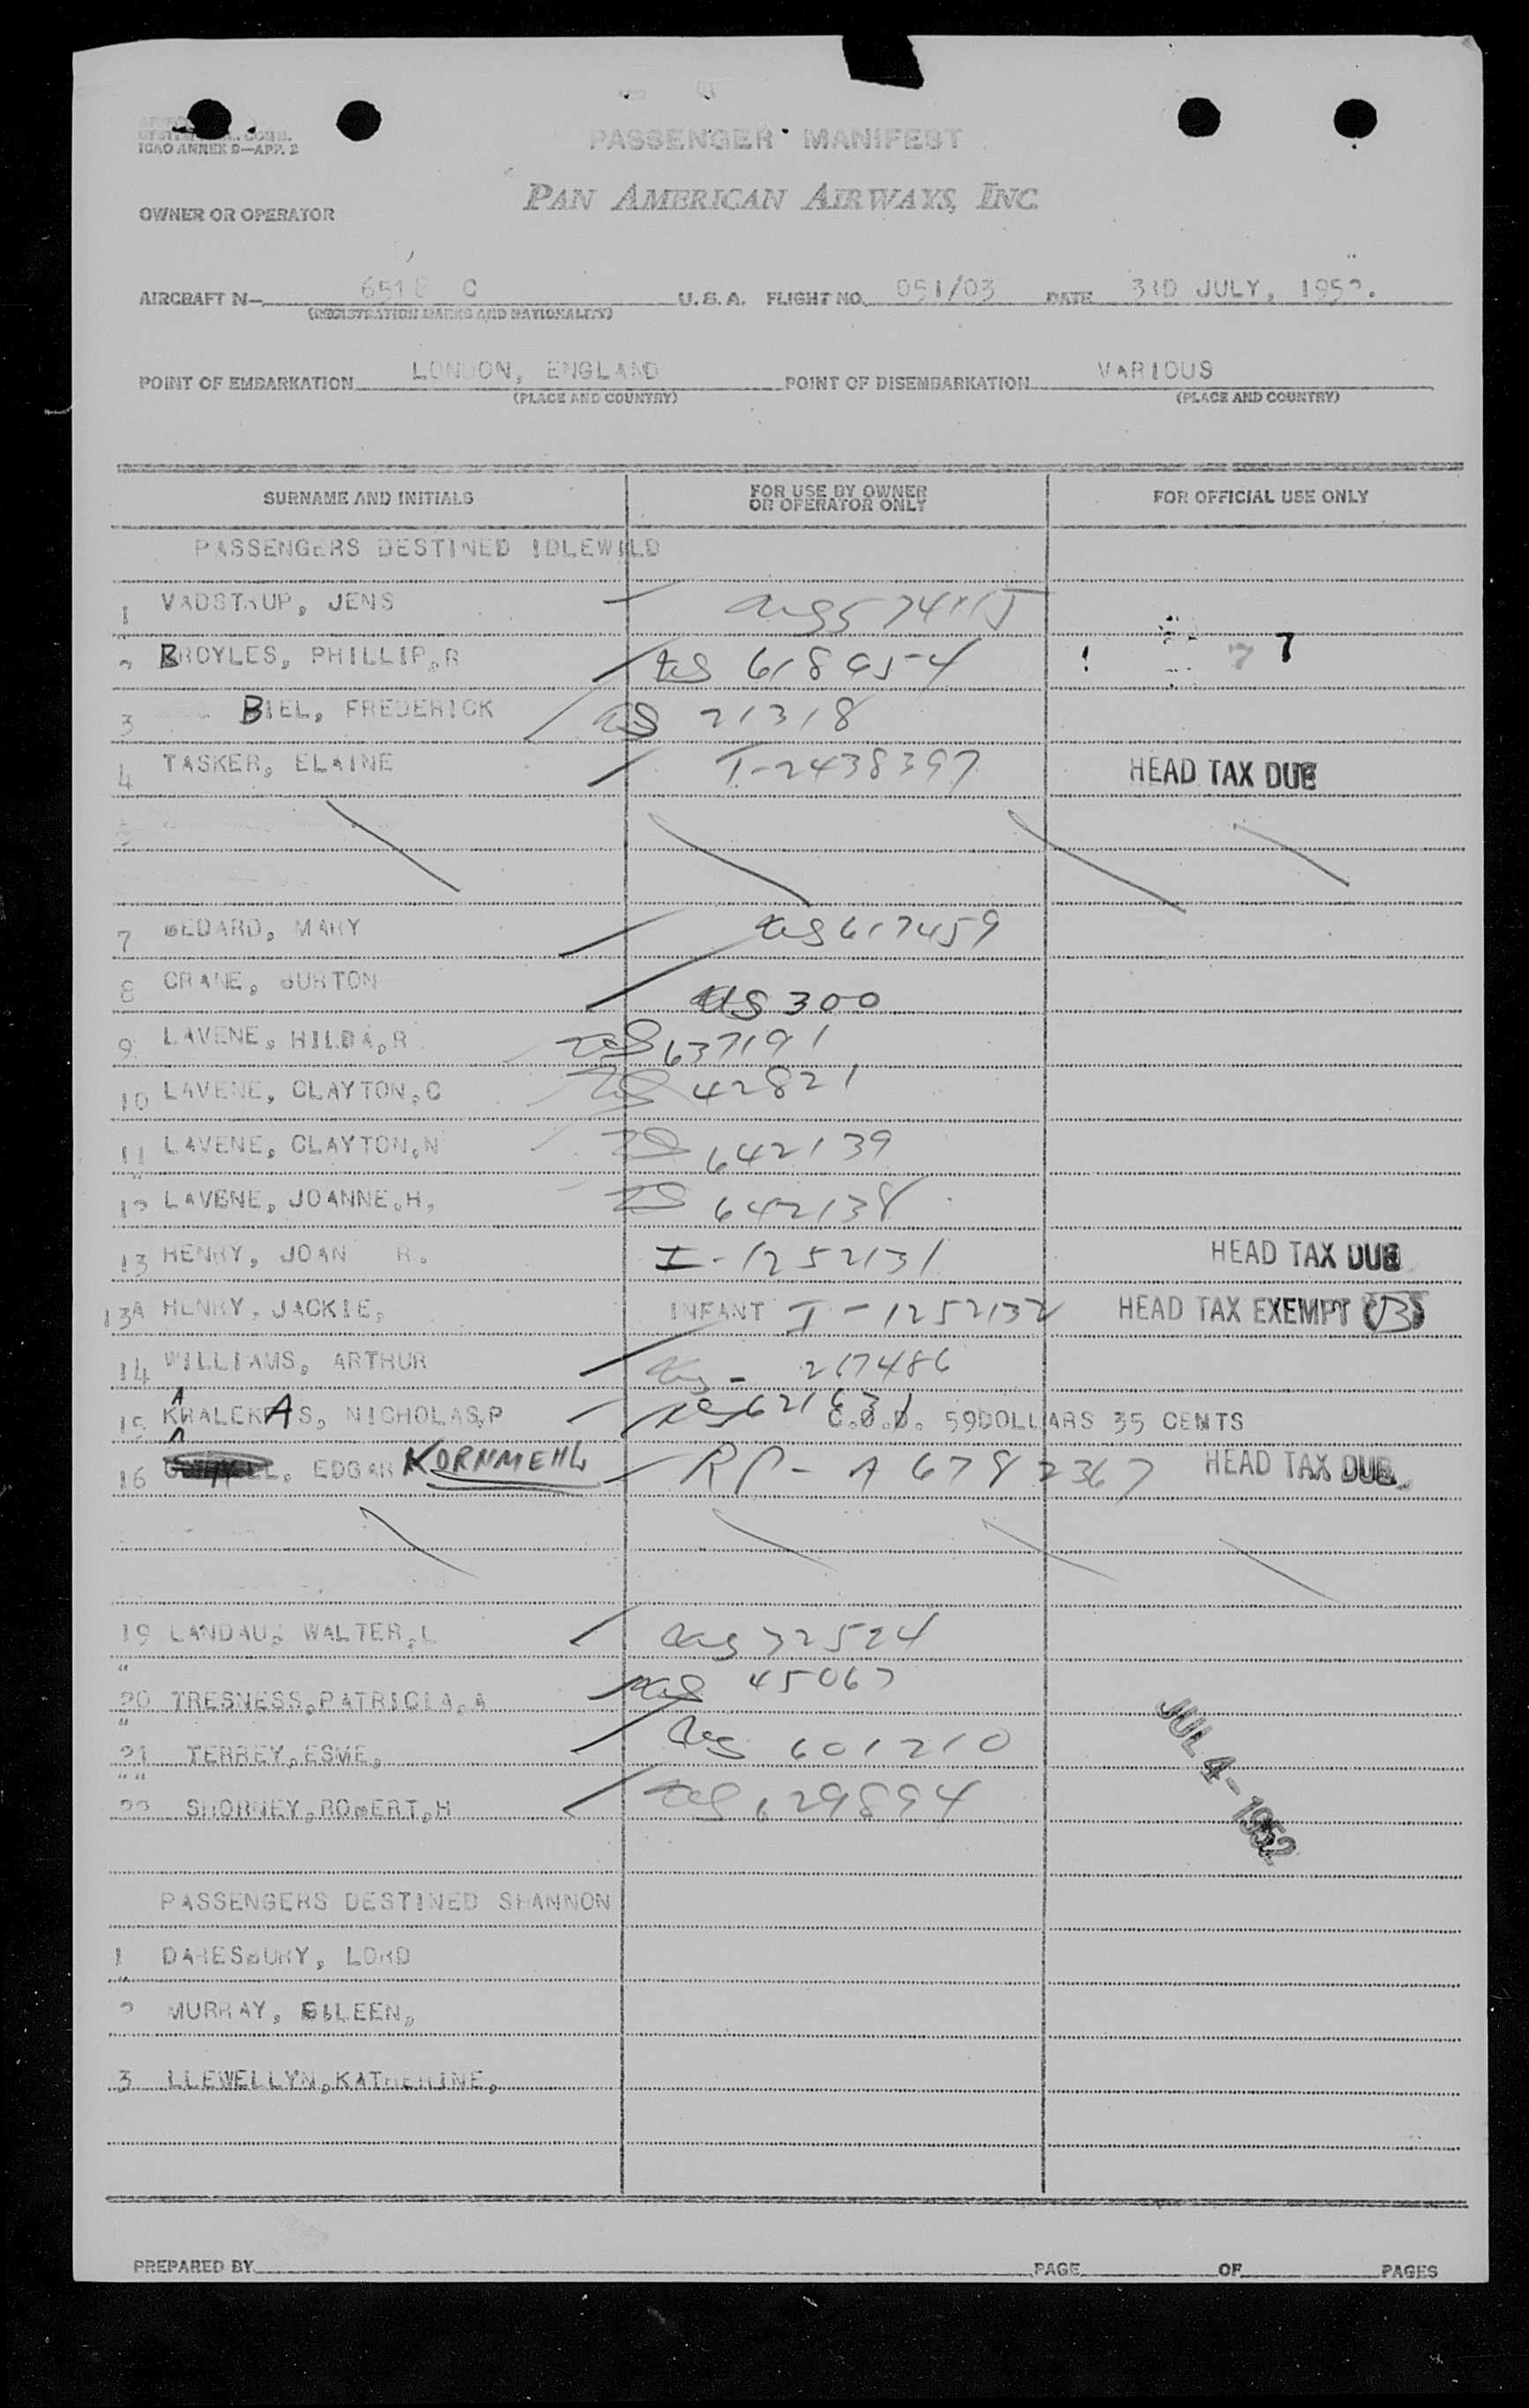 ICAO ANNEX 9—APP. 2
PASSENGER MANIFEST
PAN AMERICAN AIRWAYS, INC.
OWNER OR OPERATOR
AIRCRAFT N— C U.S.A. FLIGHT NO. 051/03 DATE 3RD JULY, 1952.
(REGISTRATION MARKS AND NATIONALITY)
POINT OF EMBARKATION LONDON, ENGLAND POINT OF DISEMBARKATION VARIOUS
(PLACE AND COUNTRY) (PLACE AND COUNTRY)
SURNAME AND INITIALS FOR USE BY OWNER OR OPERATOR ONLY FOR OFFICIAL USE ONLY
PASSENGERS DESTINED IDLEWILD
1 VADSTRUP, JENS
2 BROYLES, PHILLIP,R US 618954 7 7
3 BIEL, FREDERICK US 21318
4 TASKER, ELAINE I-2438397 HEAD TAX DUE
7 BEDARD, MARY US 617459
8 CRANE, BURTON US 300
9 LAVENE, HILDA,R US 637191
10 LAVENE, CLAYTON,C US 42821
11 LAVENE, CLAYTON,N US 642139
12 LAVENE, JOANNE,H, US 642138
13 HENRY, JOAN R. I-1252131 HEAD TAX DUE
13A HENRY, JACKIE, INFANT I-1252132 HEAD TAX EXEMPT
14 WILLIAMS, ARTHUR US - 217486
15 KARALEKAS, NICHOLAS,P US 621631 C.O.D. 59DOLLARS 35 CENTS
16 EDGAR KORNMEHL RP- A 6782367 HEAD TAX DUE
19 LANDAU, WALTER,L US 32524
20 TRESNESS,PATRICIA,A US 45067
21 TERREY,ESME, US 601210
22 SHORNEY,ROBERT,H US 629894
JUL 4-1952
PASSENGERS DESTINED SHANNON
1 DARESBURY, LORD
2 MURRAY, EILEEN,
3 LLEWELLYN,KATHERINE,
PREPARED BY PAGE OF PAGES